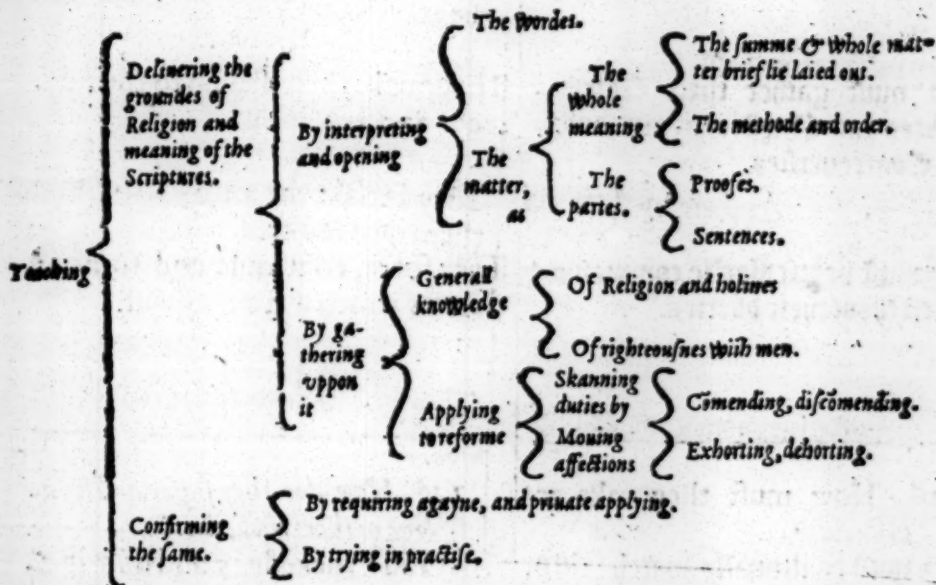 Teaching
Deliuering the
groundes of
Religion and
meaning of the
Scriptures.
By interpreting
and opening
The wordes.
The
matter,
as
The
whole
meaning
The ſumme & whole mat-
ter brieflie laied out.
The methode and order.
The
partes.
Proofes.
Sentences.
By ga-
thering
vppon
it
Generall
knowledge
Of Religion and holines
Of righteouſnes with men.
Applying
to reforme
Skanning
duties by
Mouing
affections
Cōmending, diſcōmending.
Exhorting, dehorting.
Confirming
the ſame.
By requiring agayne, and priuate applying.
By trying in practiſe.